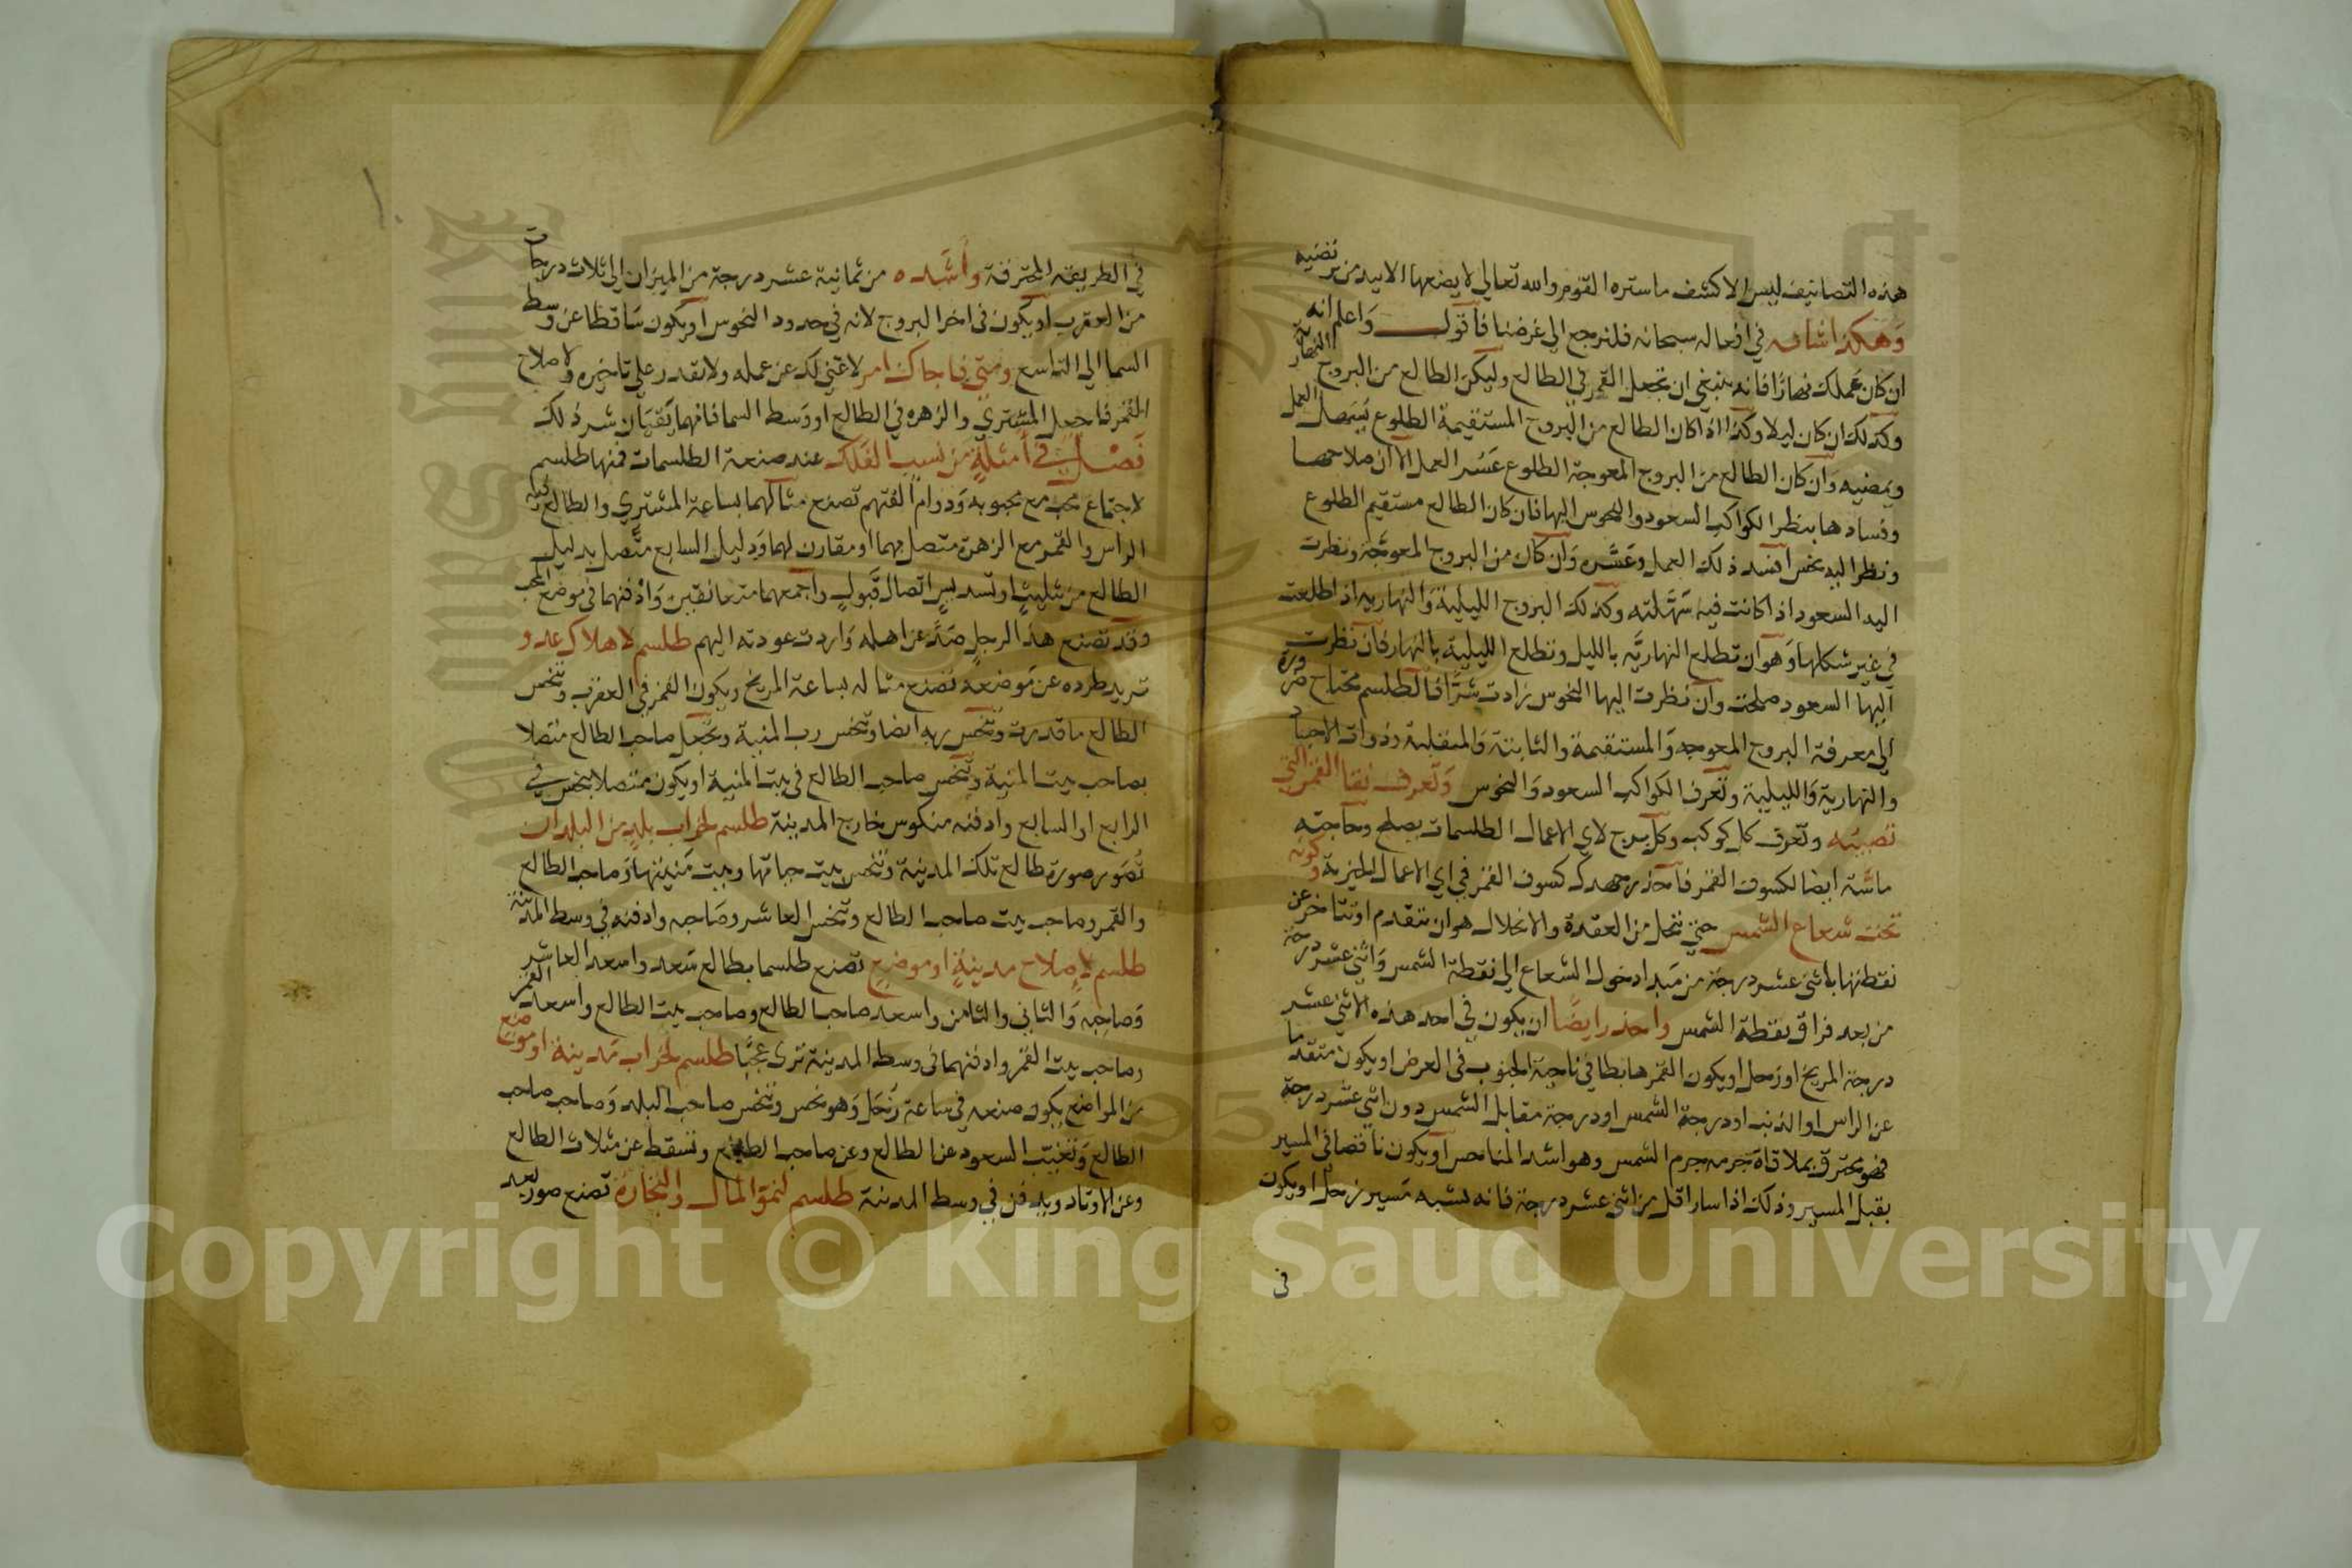 هذه التصانيف ليس الا كشف ما ستره القوم والله تعالى لا يضعها الا بيد من يرتضيه
وهكذا شانه في افعاله سبحانه فلنرجع الى غرضنا فاقول واعلم انه
ان كان عملك نهارا فانه ينبغي ان تجعل القمر في الطالع وليكن الطالع من البروج النهارية
وكذلك ان كان ليلا وكذا اذا كان الطالع من البروج المستقيمة الطلوع يسهل العمل
ويمضيه وان كان الطالع من البروج المعوجة الطلوع عسر العمل الا ان صلاحها
وفسادها بنظر الكواكب السعود والنحوس اليها فان كان الطالع مستقيم الطلوع
ونظر اليه نحس افسد ذلك العمل وعسره وان كان من البروج المعوجة ونظرت
اليه السعود اذا كانت فيه سهلته وكذلك البروج الليلية والنهارية اذا طلعت
في غير شكلها وهو ان تطلع النهارية بالليل وتطلع الليلية بالنهار فان نظرت
اليها السعود صلحت وان نظرت اليها النحوس زادت شرا فالطلسم محتاج ضرورة
الى معرفة البروج المعوجه والمستقيمة والثابتة والمنقلبة وذوات الاجساد
والنهارية والليلية وتعرف الكواكب السعود والنحوس وتعرف نقا القمر التي
تصيبه وتعرف كل كوكب وكل برج لاي الاعمال الطلسمات يصلح وحاجته
ماسة ايضا لكسوف القمر فاحذر جهدك كسوف القمر في اي الاعمال الخيرية وكونه
تحت شعاع الشمس حتى تنحل من العقدة والانحلال هو ان تتقدم او تتاخر عن
نقطتها باثني عشر درجة من مبدا دخول الشعاع الى نقطة الشمس واثني عشر درجة
من بعد فراق نقطة الشمس واحذر ايضا ان يكون في احد هذه الاثني عشر
درجة المريخ او زحل او يكون القمر هابطا في ناحية الجنوب في العرض او يكون متقدما
عن الراس او الذنب او درجة الشمس او درجة مقابل الشمس دون اثني عشر درجة
فهو محترق بملاقاة جرمه جرم الشمس وهو اشد المناحس او يكون ناقصا في المسير
يقبل المسير وذلك اذا سار اقل من اثني عشر درجة فانه يشبه مسير زحل او يكون
في
في الطريقة المحترقة واشده من ثمانية عشر درجة من الميزان الى ثلاث درجات
من العقرب او يكون في اخر البروج لانه في حدود النحوس او يكون ساقطا عن وسط
السما الى التاسع ومتى فاجاك امر لا غنى لك عن عمله ولا تقدر على تاخيره ولا صلاح
القمر فاجعل المشتري والزهره في الطالع او وسط السما فانهما يقيان شر ذلك
فصل في امثلة من نسب الفلك عند صنعة الطلسمات فمنها طلسم
لاجتماع محب مع محبوبه ودوام الفتهم تصنع مثالهما بساعة المشتري والطالع فيه
الراس والقمر مع الزهرة متصل بهما او مقارن لهما ودليل السابع متصل بدليل
الطالع من تثليث او تسديس اتصال قبول واجمعهما متعانقين وادفنهما في موضع المحب
وقد تصنع هذا لرجل صد عن اهله واردت عودته اليهم طلسم لاهلاك عدو
تريد طرده عن موضعه تصنع مثاله بساعة المريخ ويكون القمر في العقرب وتنحس
الطالع ما قدرت وتنحس ربه ايضا وتنحس رب المنية وتجعل صاحب الطالع متصلا
بصاحب بيت المنية وتنحس صاحب الطالع في بيت المنية او يكون متصلا بنحس في
الرابع او السابع وادفنه منكوس خارج المدينة طلسم لخراب بلد من البلدان
تصور صورة طالع تلك المدينة وتنحس بيت حياتها وبيت منيتها وصاحب الطالع
والقمر وصاحب بيت صاحب الطالع وتنحس العاشر وصاحبه وادفنه في وسط المدينة
طلسم لاصلاح مدينة او موضع تصنع طلسما بطالع سعد واسعد العاشر
وصاحبه والثاني والثامن واسعد صاحب الطالع وصاحب بيت الطالع واسعد القمر
وصاحب بيت القمر وادفنهما في وسط المدينة ترى عجبا طلسم لخراب مدينة او موضع
من المواضع يكون صنعه في ساعة زحل وهو نحس وتنحس صاحب البلد وصاحب صاحب
الطالع وتغيب السعود عن الطالع وعن صاحب الطالع وتسقط عن مثلاث الطالع
وعن الاوتاد ويدفن في وسط المدينة طلسم لنمو المال والتجارة تصنع صور بعد
Copyright © King Saud University